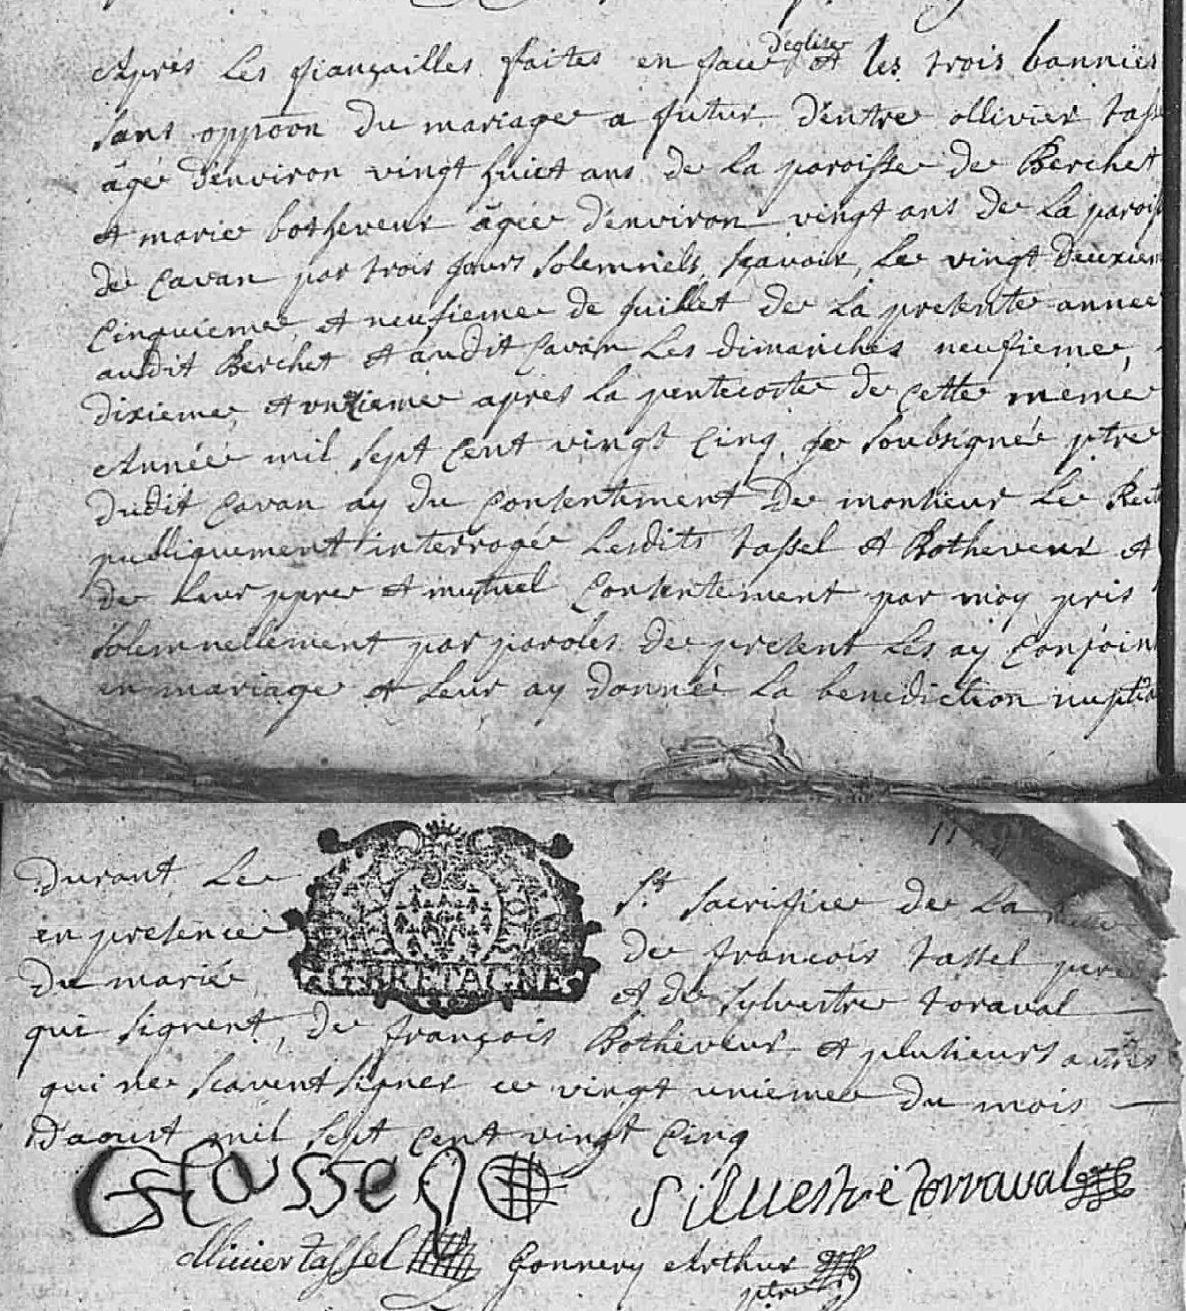 Après les fiançailles faites en face d'eglise et les trois bannies
sans oppoon du mariage a futur d'entre ollivier tass
âgé d'environ vingt huict ans de la paroisse de Berchet
et marie botheveur âgée d'environ vingt ans de la parois
de Cavan par trois jours solemnels, sçavoir, le vingt deuxiem
Cinquieme, et neufieme de juillet de la presente annee
audit Berchet et audit Cavan les dimanches neufieme,
dixieme, et unzieme apres la pentecoste de cette même
Année mil sept cent vingt cinq, je soubsigné ptre
dudit Cavan ay du consentement de monsieur le Rect
publiquement interrogé lesdits tassel et Botheveur et
de leur ppre et mutuel consentement par moy pris
solemnellement par paroles de present les ay conjoin
en mariage et leur ay donné la benediction nuptia
durant le St sacrifice de la
en presence de francois tassel pere
du marié, et de sylvestre toraval
G. BRETAGNE.
qui signent, de françois Botheveur et plusieurs autres
qui ne scavent signer ce vingt unieme du mois
D'aoust mil sept cent vingt cinq
Siluestre torraval
ollivier tassel Gonnery Arthur
ptre